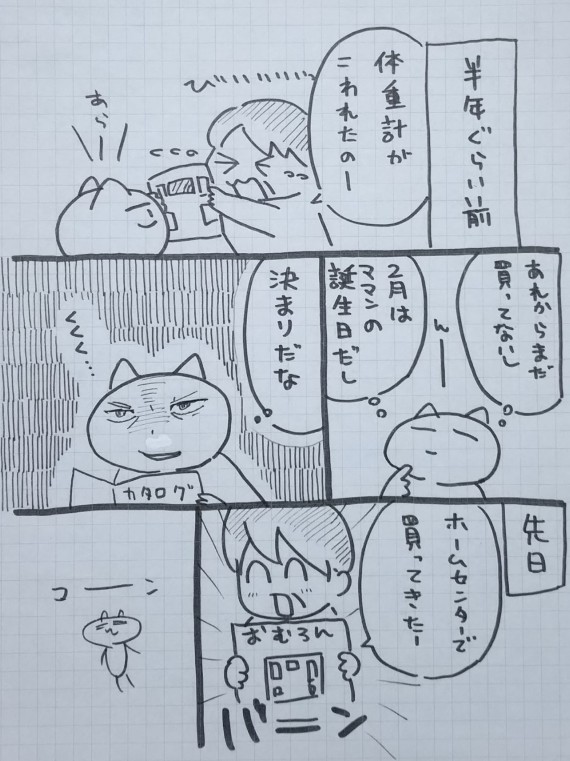 半年ぐらい前
体重計が
こわれたのー
びぃ
あらー
あれからまだ
買ってないし
んー
2月は
ママンの
誕生日だし
決まりだな
くくく…
カタログ
先日
ホームセンターで
買ってきたー
おむろん
バーン
コーン